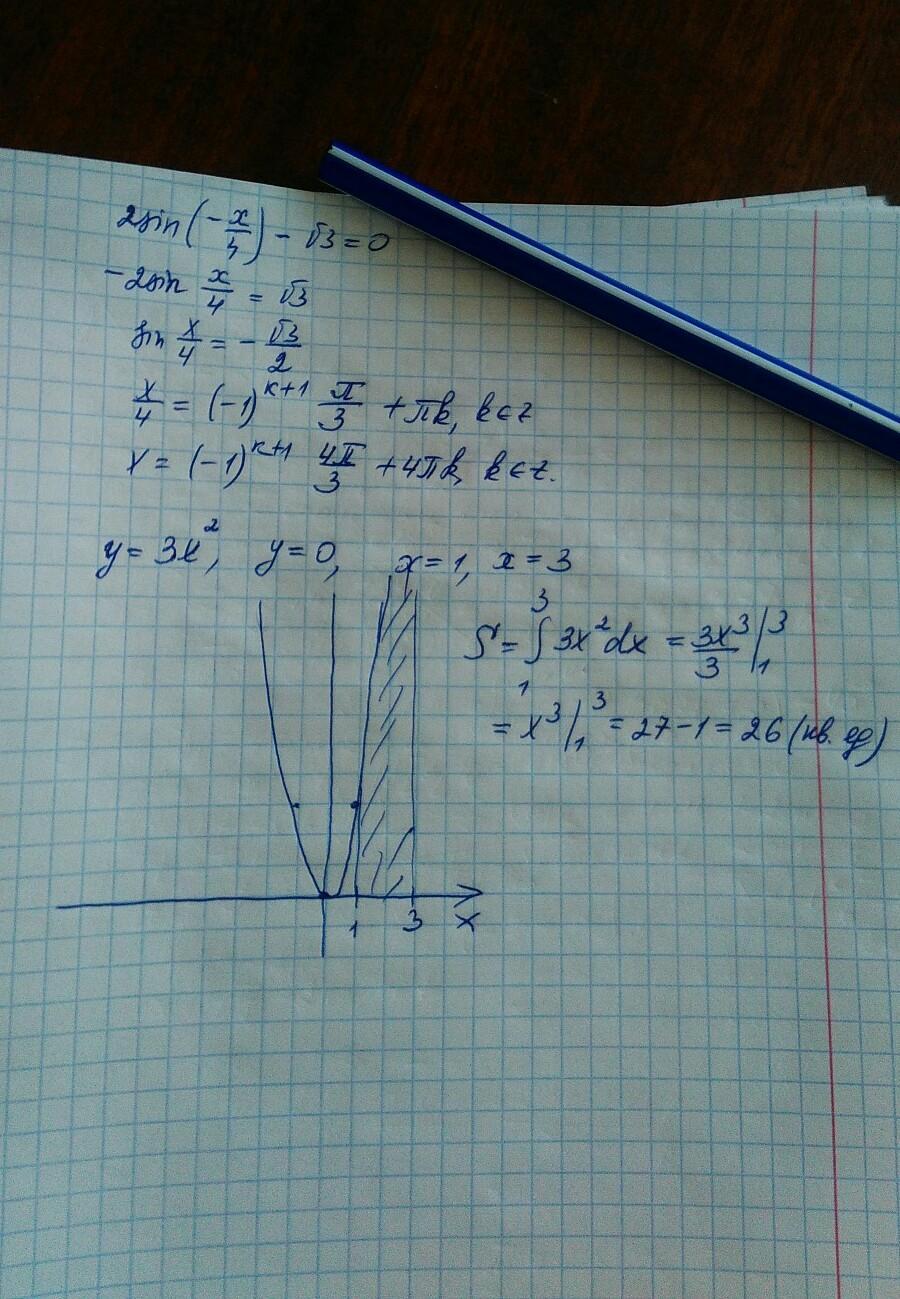 2sin(-x/4) - √3 = 0
-2sin x/4 = √3
sin x/4 = - √3/2
x/4 = (-1)^(k+1) π/3 + πk, k∈z
x = (-1)^(k+1) 4π/3 + 4πk, k∈z.
y = 3x², y = 0, x = 1, x = 3
S = ∫₁³ 3x² dx = 3x³/3 |₁³
= x³ |₁³ = 27 - 1 = 26 (кв. ед)
1 3 x